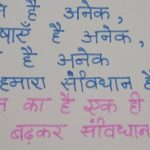 है अनेक,
भाषाएँ है अनेक,
है अनेक
हमारा संविधान है
का है एक ही
बढ़कर संविधान